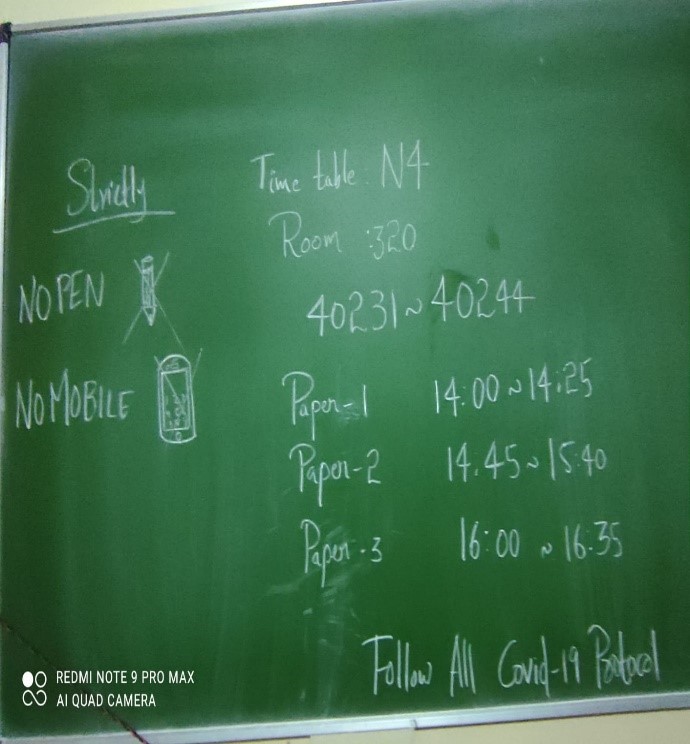 Strictly
NO PEN
NO MOBILE
Time table: N4
Room :320
40231~40244
Paper-1 14:00~14:25
Paper-2 14.45~15:40
Paper-3 16:00 ~ 16:35
Follow All Covid-19 Protocol
REDMI NOTE 9 PRO MAX
AI QUAD CAMERA